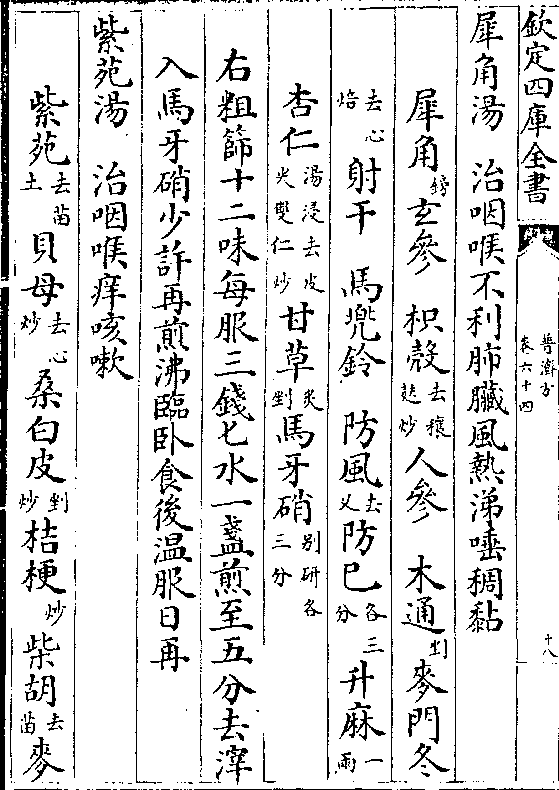 欽定四庫全書
普濟方
卷六十四
十八
犀角湯　治咽喉不利肺臟風熱涕唾稠黏
犀角鎊玄參　枳殼去穰麩炒人參　木通剉麥門冬
去心焙射干　馬兜鈴　防風去叉防巳各三分升麻一兩
杏仁湯浸去皮尖雙仁炒甘草炙剉馬牙硝别研各三分
右粗篩十二味每服三錢匕水一盞煎至五分去滓
入馬牙硝少許再煎沸臨卧食後温服日再
紫苑湯　治咽喉痒咳嗽
紫苑去苗土貝母去心炒桑白皮剉炒桔梗炒柴胡去苗麥